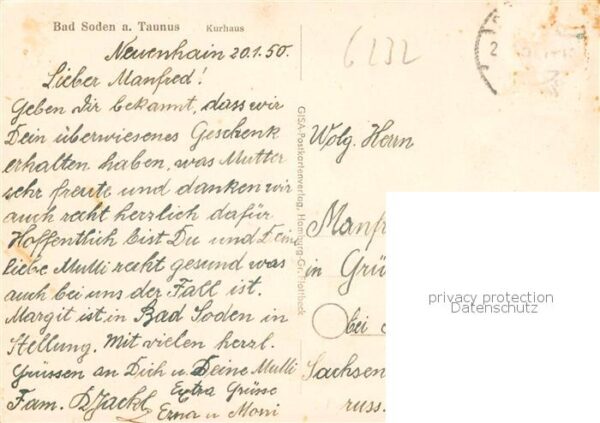 Bad Soden a. Taunus Kurhaus
Neuenhain 20.1.50.
Lieber Manfred!
Geben Dir bekannt, dass wir
Dein überwiesenes Geschenk
erhalten haben, was Mutter
sehr freute und danken wir
auch recht herzlich dafür
Hoffentlich bist Du und Deine
liebe Mutti recht gesund was
auch bei uns der Fall ist.
Margit ist in Bad Soden in
Stellung. Mit vielen herzl.
Grüssen an Dich u Deine Mutti
Fam. Extra Grüsse
Erna u
6232
GISA-Postkartenverlag, Hamburg-Gr. Flottbeck
Wolg. Herrn
Manf
in Grü
bei
Sachsen
russ.
privacy protection
Datenschutz